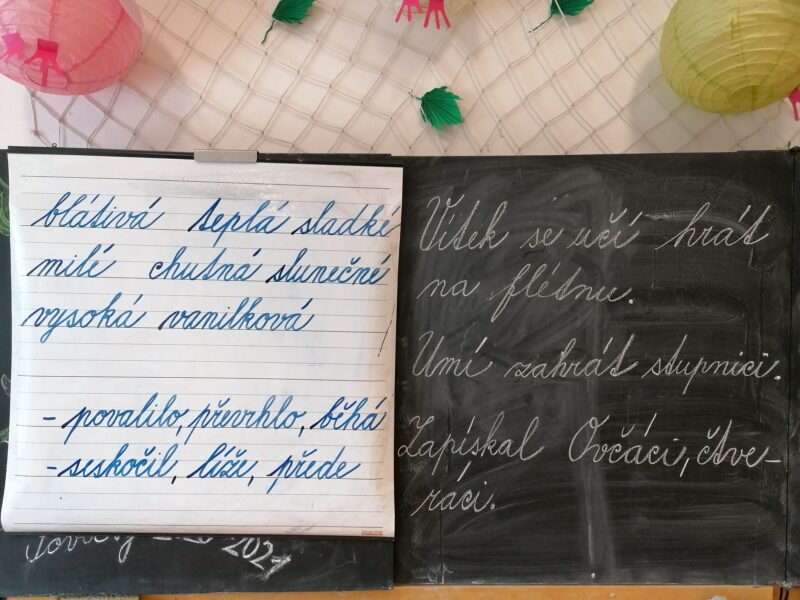 blátivá teplá sladké
milé chutná slunečné
vysoká vanilková
- povalilo, převrhlo, běhá
- seskočil, líže, přede
Vítek se učí hrát
na flétnu.
Umí zahrát stupnici.
Zapískal Ovčáci, čtve-
ráci.